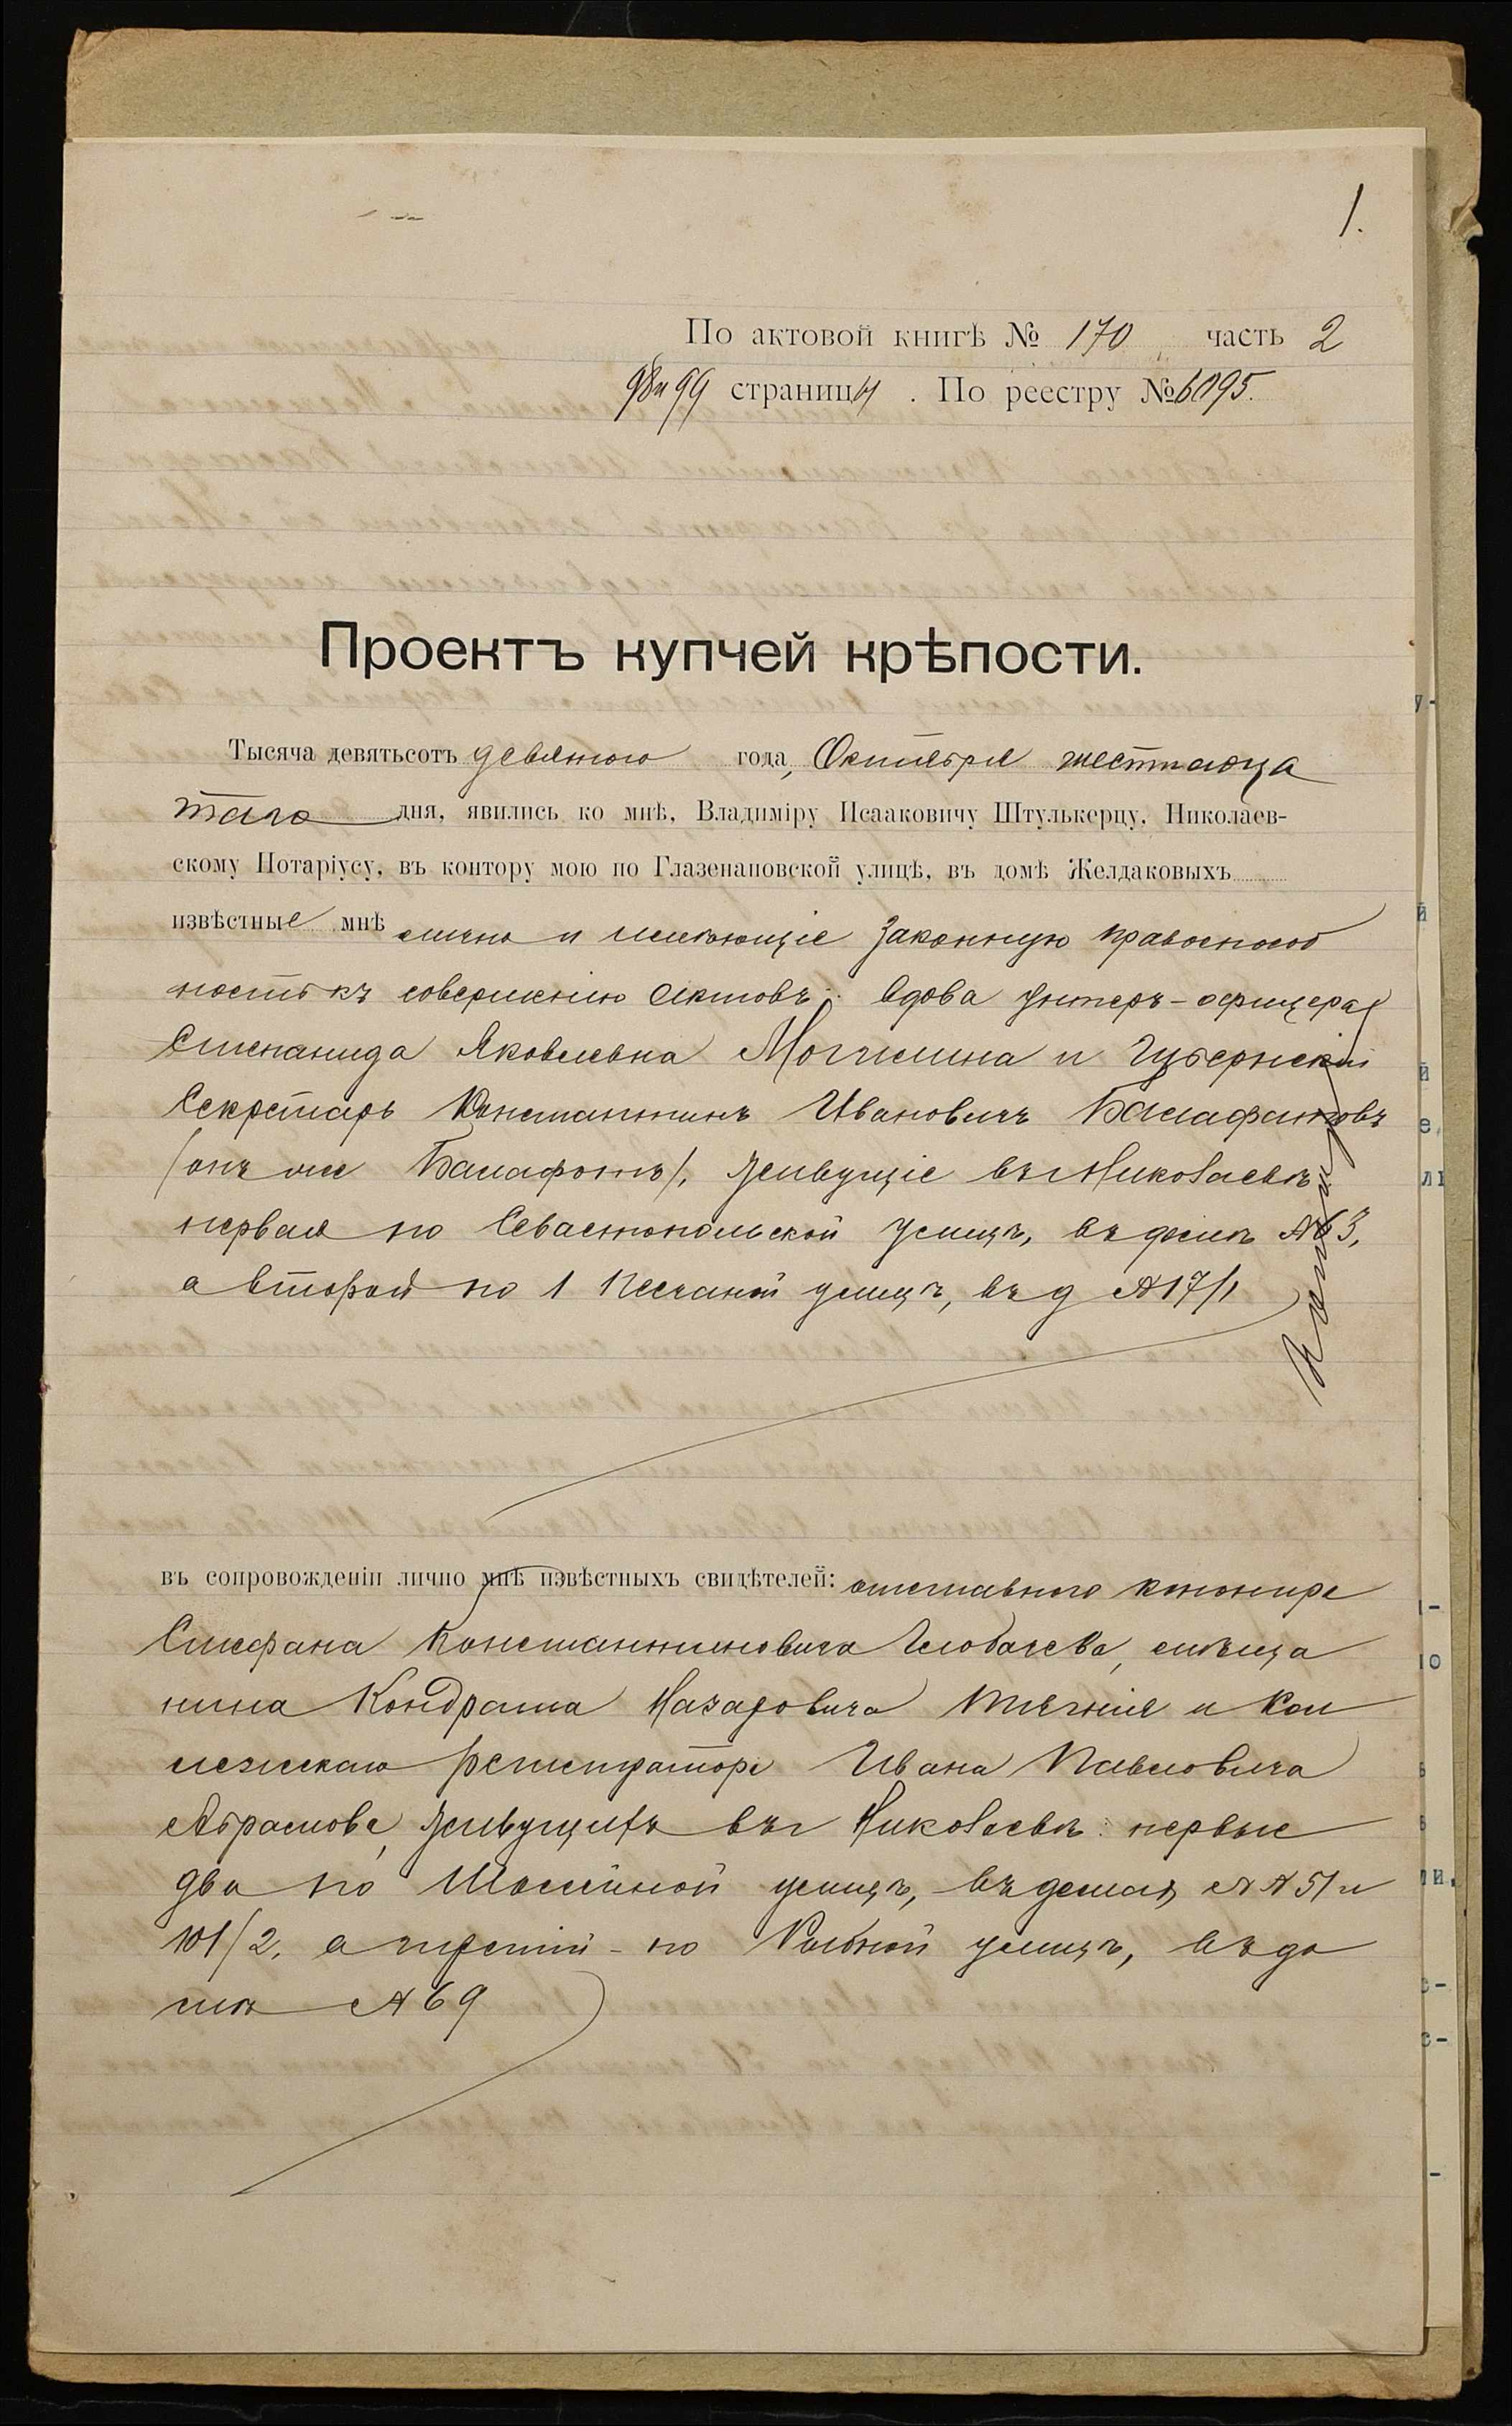 1.
По актовой книгѣ № 170 часть 2
98 и 99 страницы . По реестру № 6095.
Проектъ купчей крѣпости.
Тысяча девятьсотъ девятого года, Октября шестнадца
таго дня, явились ко мнѣ, Владиміру Исааковичу Штулькерцу, Николаев-
скому Нотаріусу, въ контору мою по Глазенаповской улицѣ, въ домѣ Желдаковыхъ
извѣстные мнѣ лично и имѣющіе законную правоспособ
ность къ совершенію актовъ: вдова унтеръ-офицера
Степанида Яковлевна Могилина и Губернскій
Секретарь Константинъ Ивановичъ Балафановъ
(онъ же Балафонъ), живущіе въ г Николаевѣ
первая по Севастопольской улицѣ, въ домѣ № 63,
а второй по 1 Песчаной улицѣ, въ д № 17/1
Копія
въ сопровожденіи лично мнѣ извѣстныхъ свидѣтелей: отставного канонира
Стефана Константиновича Глобачева, мѣща
нина Кондрата Назаровича и Кол
лежскаго регистратора Ивана Павловича
Абрамова, живущихъ въ г Николаевѣ: первые
два по Шоссейной улицѣ, въ домахъ №№ 51 и
101/2, а третій - по улицѣ, въ до
мѣ № 69